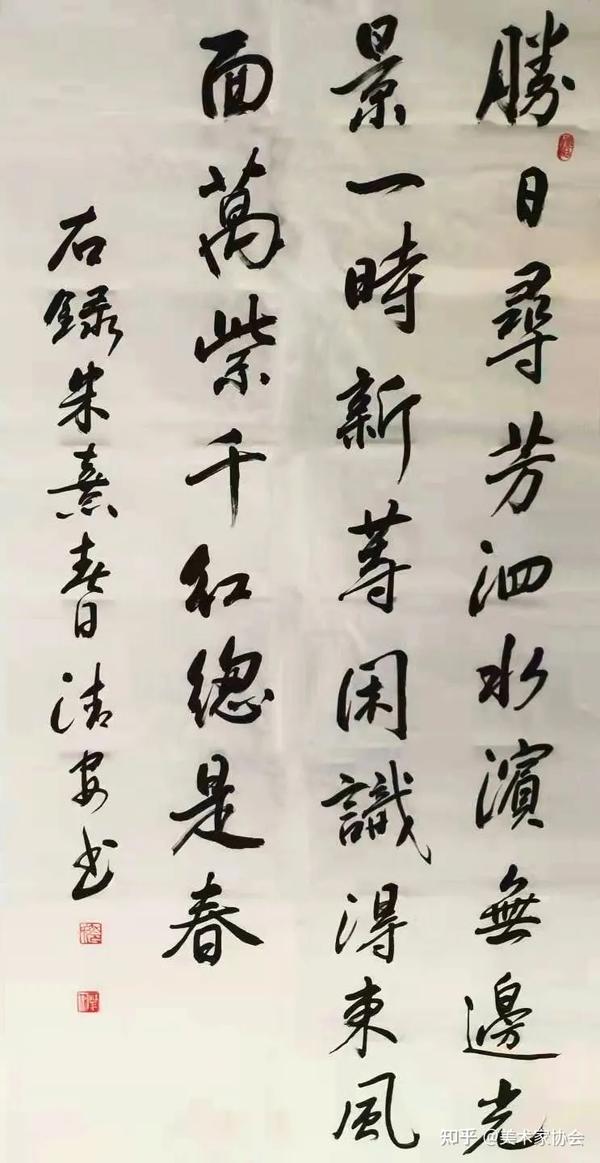 勝日尋芳泗水濱無邊光
景一時新等閑識得東風
面萬紫千紅總是春
右錄朱熹春日清安书
知乎 @美术家协会